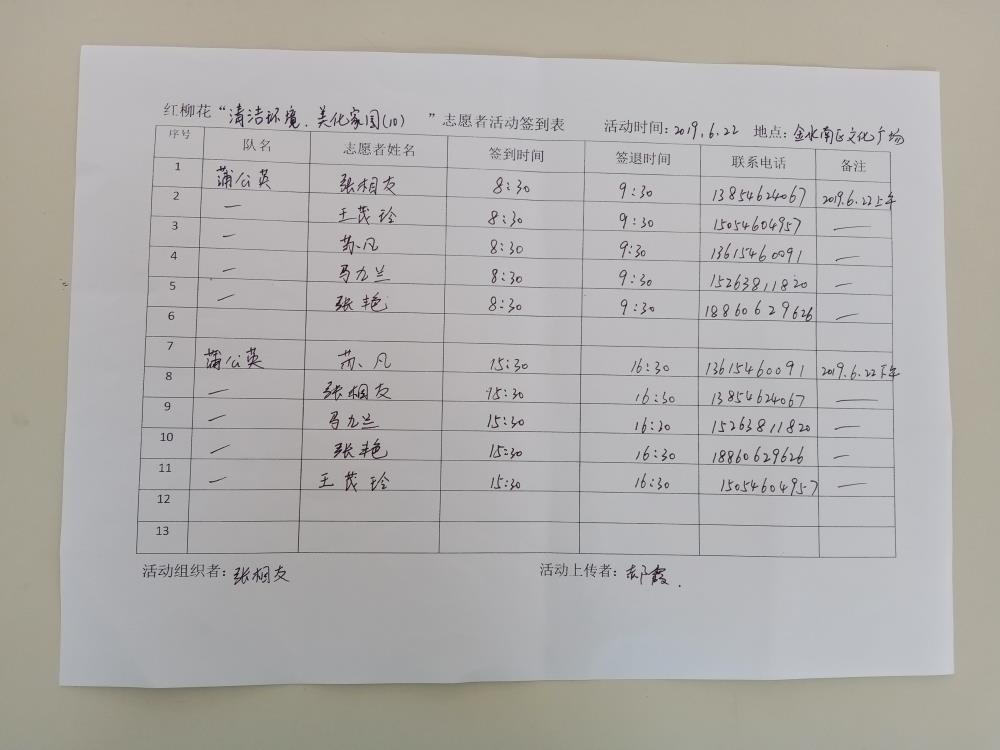 红柳花“清洁环境、美化家园(10) ”志愿者活动签到表 活动时间:2019.6.22 地点:金水南区文化广场
序号 队名 志愿者姓名 签到时间 签退时间 联系电话 备注
1 蒲公英 张相友 8:30 9:30 13854624067 2019.6.22上午
2 — 王茂玲 8:30 9:30 15054604957 —
3 — 苏凡 8:30 9:30 13615460091 —
4 — 马九兰 8:30 9:30 15263811820 —
5 — 张艳 8:30 9:30 18860629626 —
6
7 蒲公英 苏凡 15:30 16:30 13615460091 2019.6.22下午
8 — 张相友 15:30 16:30 13854624067 —
9 — 马九兰 15:30 16:30 15263811820 —
10 — 张艳 15:30 16:30 18860629626 —
11 — 王茂玲 15:30 16:30 15054604957 —
12
13
活动组织者:张相友 活动上传者:霞.